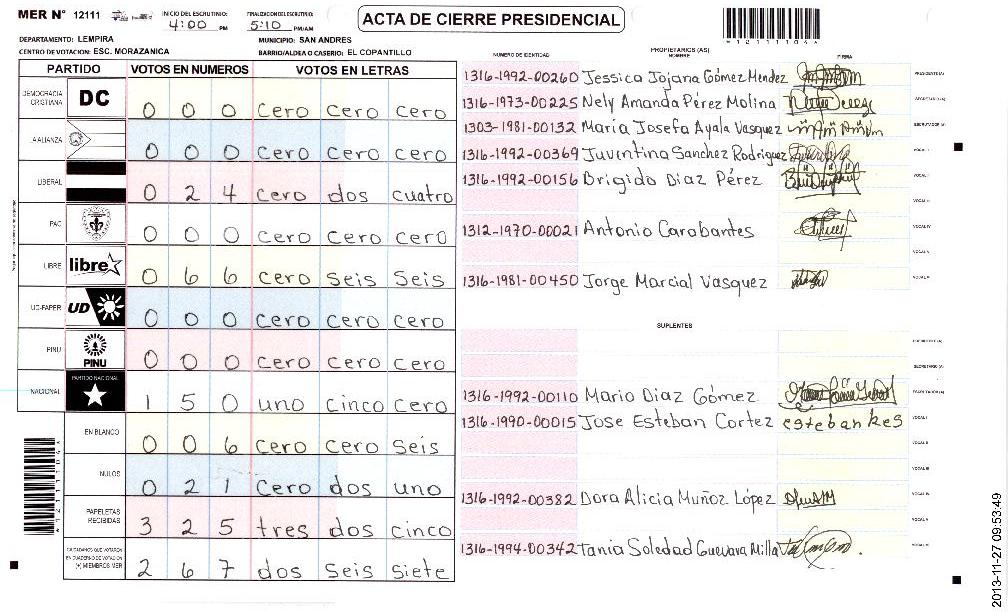 MER Nº 12111
INICIO DE ESCRUTINIO: 4:00 PM
FINALIZACION DEL ESCRUTINIO: 5:10 PM/AM
ACTA DE CIERRE PRESIDENCIAL
DEPARTAMENTO: LEMPIRA
MUNICIPIO: SAN ANDRES
CENTRO DE VOTACION: ESC. MORAZANICA
BARRIO/ALDEA O CASERIO: EL COPANTILLO
*12111104*
PARTIDO VOTOS EN NUMEROS VOTOS EN LETRAS
DEMOCRACIA CRISTIANA DC 0 0 0 cero cero cero
LA ALIANZA 0 0 0 cero cero cero
LIBERAL 0 2 4 cero dos cuatro
PAC 0 0 0 cero cero cero
LIBRE libre 0 6 6 cero seis seis
UD-FAPER UD 0 0 0 cero cero cero
PINU PINU 0 0 0 cero cero cero
NACIONAL PARTIDO NACIONAL 1 5 0 uno cinco cero
EN BLANCO 0 0 6 cero cero seis
NULOS 0 2 1 cero dos uno
PAPELETAS RECIBIDAS 3 2 5 tres dos cinco
CIUDADANOS QUE VOTARON EN CUADERNO DE VOTACION (+) MIEMBROS MER 2 6 7 dos seis siete
PROPIETARIOS (AS)
NUMERO DE IDENTIDAD NOMBRE FIRMA
1316-1992-00260 Jessica Jojana Gómez Mendez PRESIDENTE (A)
1316-1973-00225 Nely Amanda Pérez Molina SECRETARIO (A)
1303-1981-00132 María Josefa Ayala Vasquez ESCRUTADOR (A)
1316-1992-00369 Juventina Sanchez Rodriguez VOCAL I
1316-1992-00156 Brigido Diaz Pérez
VOCAL III
1312-1970-00021 Antonio Carabantes VOCAL IV
VOCAL V
1316-1981-00450 Jorge Marcial Vasquez
SUPLENTES
PRESIDENTE (A)
SECRETARIO (A)
1316-1992-00110 Mario Diaz Gómez ESCRUTADOR (A)
1316-1990-00015 Jose Esteban Cortez esteban kes VOCAL I
VOCAL II
VOCAL III
1316-1992-00382 Dora Alicia Muñoz López VOCAL IV
VOCAL V
1316-1994-00342 Tania Soledad Guevara Milla
2013-11-27 09:53:49